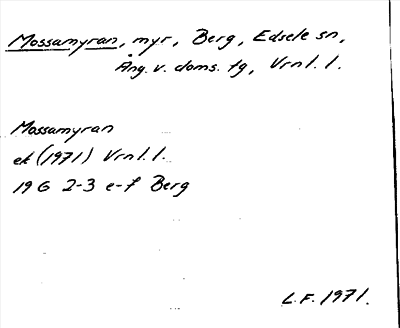 Mossamyran, myr, Berg, Edsele sn,
Ång. v. doms. tg, Vrnl. l.
Mossamyran
ek (1971) Vrnl. l.
19 G 2-3 e-f Berg
L.F. 1971.